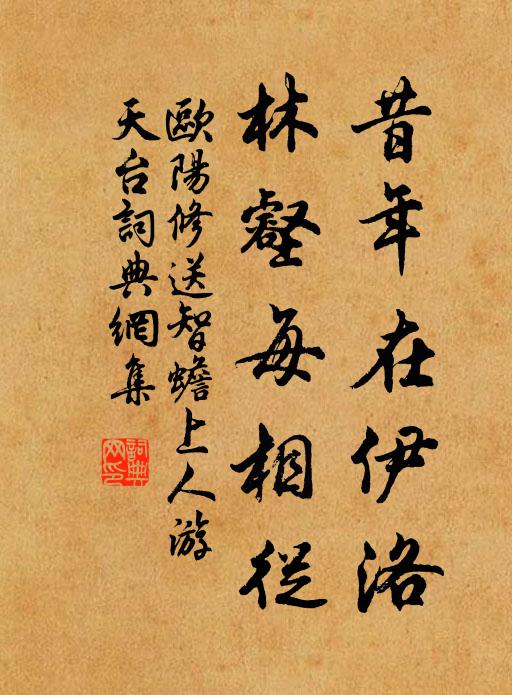 昔年在伊洛
林壑每相從
歐陽修送智蟾上人游
天台詞典網集
詞典網印